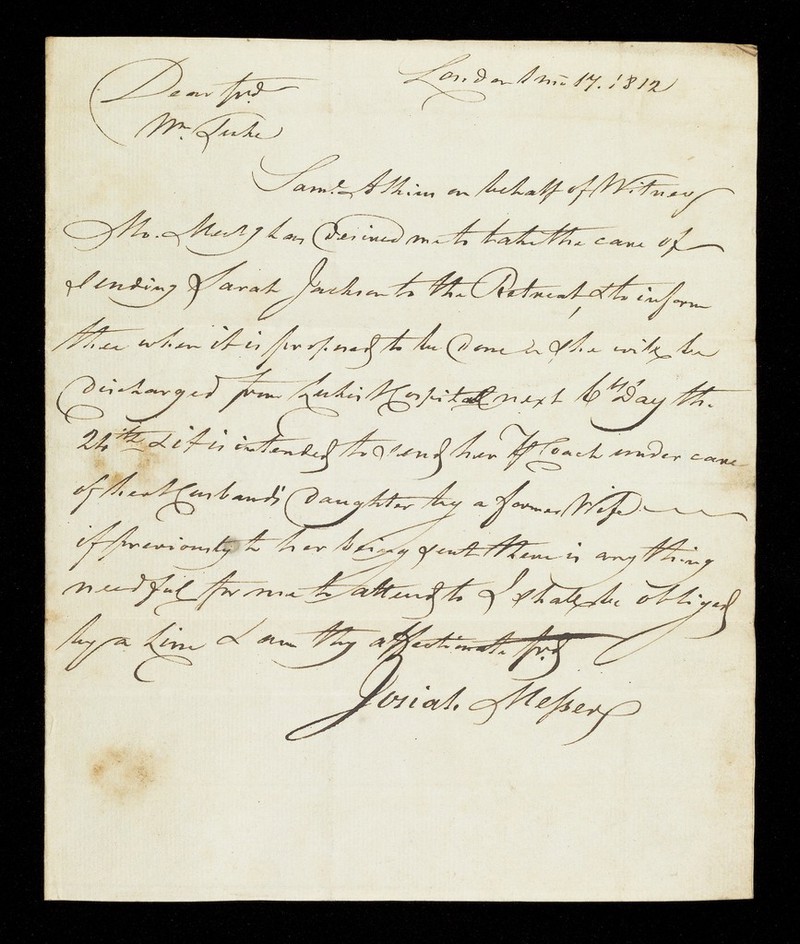 London 1 mo 17. 1812
Dear frd
Wm. Tuke
Saml. Atkins on behalf of Witney
Mo. Meetg has desired me to take the care of
sending Sarah Jackson to the Retreat, & to inform
thee when it is proposed to be done she will be
discharged from Lukes Hospital next 6th Day the
24th & it is intended to send her Coach under care
of her Husbands Daughter by a former Wife
if previously to her being sent there is any thing
needful for me to attend to I shall be obliged
by a Line & am thy affectionate frd
Josiah Messer